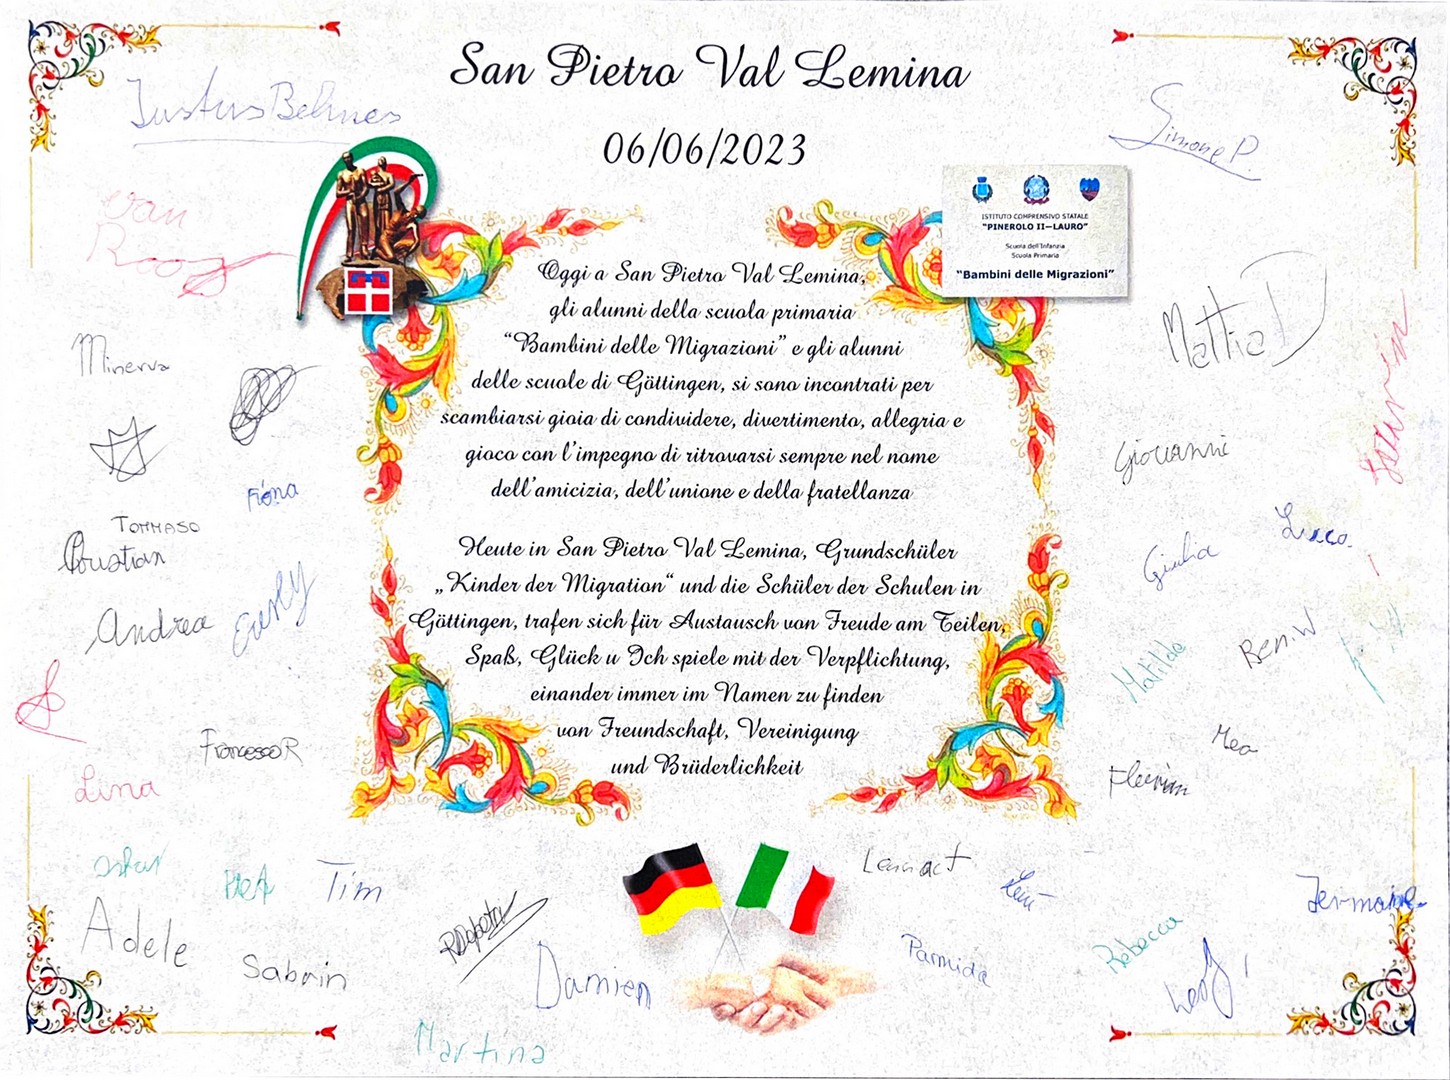 San Pietro Val Lemina
06/06/2023
Justus Behnes
Simone P.
van
Roos
ISTITUTO COMPRENSIVO STATALE
"PINEROLO II—LAURO"
Scuola dell'Infanzia
Scuola Primaria
"Bambini delle Migrazioni"
Oggi a San Pietro Val Lemina,
gli alunni della scuola primaria
"Bambini delle Migrazioni" e gli alunni
delle scuole di Göttingen, si sono incontrati per
scambiarsi gioia di condividere, divertimento, allegria e
gioco con l'impegno di ritrovarsi sempre nel nome
dell'amicizia, dell'unione e della fratellanza
Heute in San Pietro Val Lemina, Grundschüler
„Kinder der Migration“ und die Schüler der Schulen in
Göttingen, trafen sich für Austausch von Freude am Teilen,
Spaß, Glück u Ich spiele mit der Verpflichtung,
einander immer im Namen zu finden
von Freundschaft, Vereinigung
und Brüderlichkeit
Minerva
Mattia D
Giovanni
Fiona
TOMMASO
Cristian
Giulia
Luca
Andrea
Emily
Ben.W
Matilde
Francesco R
Mea
Lina
Tim
Lennart
Jermaine
Adele
Sabrin
Damien
Parmida
Rebecca
Martina